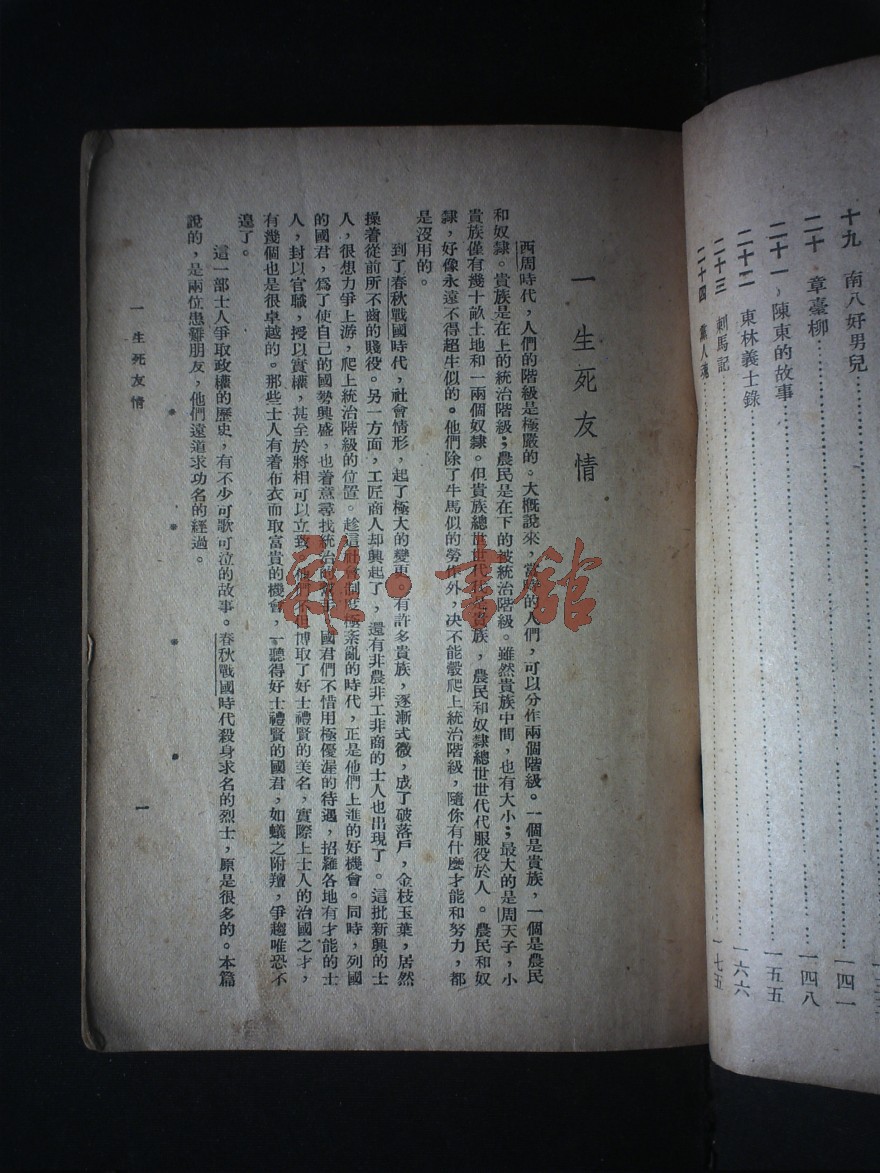 十九　南八好男兒……一四一
二十　章臺柳……一四八
二十一　陳東的故事……一五五
二十二　東林義士錄……一六六
二十三　刺馬記……一七五
二十四　黨人魂
一　生死友情
西周時代，人們的階級是極嚴的。大概說來，當時的人們，可以分作兩個階級。一個是貴族，一個是農民
和奴隸。貴族是在上的統治階級；農民是在下的被統治階級。雖然貴族中間，也有大小；最大的是周天子，小
貴族僅有幾十畝土地和一兩個奴隸。但貴族總世世代代是貴族，農民和奴隸總世世代代服役於人。農民和奴
隸，好像永遠不得超生似的。他們除了牛馬似的勞作外，決不能彀爬上統治階級，隨你有什麼才能和努力，都
是沒用的。
到了春秋戰國時代，社會情形，起了極大的變更。有許多貴族，逐漸式微，成了破落戶，金枝玉葉，居然
操着從前所不齒的賤役。另一方面，工匠商人却興起了，還有非農非工非商的士人也出現了。這批新興的士
人，很想力爭上游，爬上統治階級的位置。趁這制度極紊亂的時代，正是他們上進的好機會。同時，列國
的國君，爲了使自己的國勢興盛，也着意尋找統治的幫手。國君們不惜用極優渥的待遇，招羅各地有才能的士
人，封以官職，授以實權，甚至於將相可以立致。他們不但博取了好士禮賢的美名，實際上士人的治國之才，
有幾個也是很卓越的。那些士人有着布衣而取富貴的機會，一聽得好士禮賢的國君，如蟻之附羶，爭趨唯恐不
遑了。
這一部士人爭取政權的歷史，有不少可歌可泣的故事。春秋戰國時代殺身求名的烈士，原是很多的。本篇
說的，是兩位患難朋友，他們遠道求功名的經過。
一　生死友情
一
雜·書館